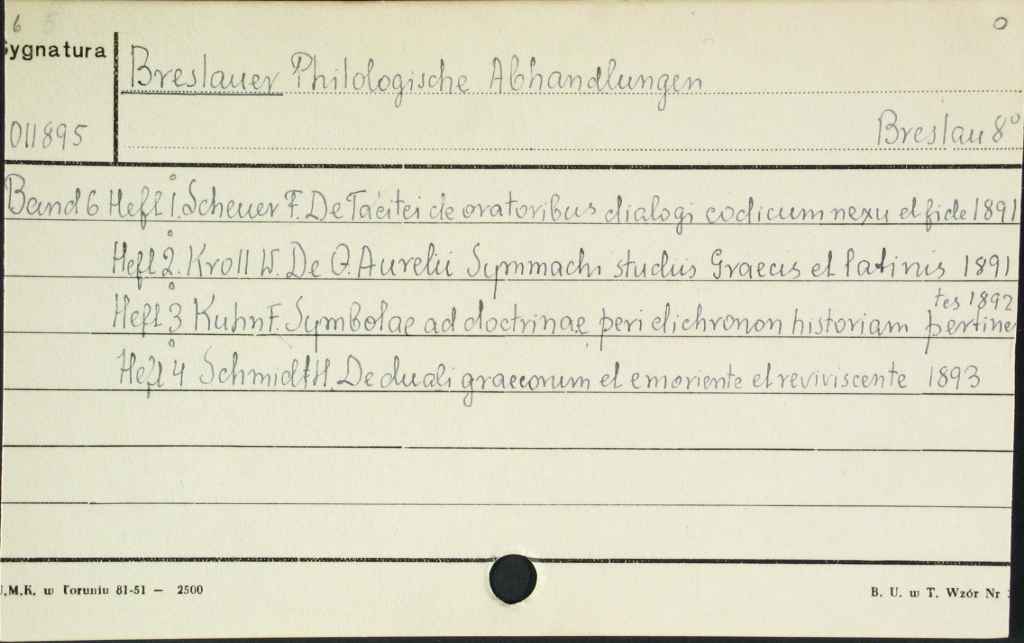 6 5 0
Sygnatura
Breslauer Philologische Abhandlungen
011895
Breslau 8°
Band 6 Heft 1. Scheuer F. De Tacitei de oratoribus dialogi codicum nexu et fide 1891
Heft 2. Kroll W. De Q. Aurelii Symmachi studiis Graecis et latinis 1891
tes 1892
Heft 3 Kuhn F. Symbolae ad doctrinae peri dichronon historiam pertinen
Heft 4 Schmidt H. De duali graecorum et emoriente et reviviscente 1893
U.M.K. w Toruniu 81-51 — 2500
B. U. w T. Wzór Nr